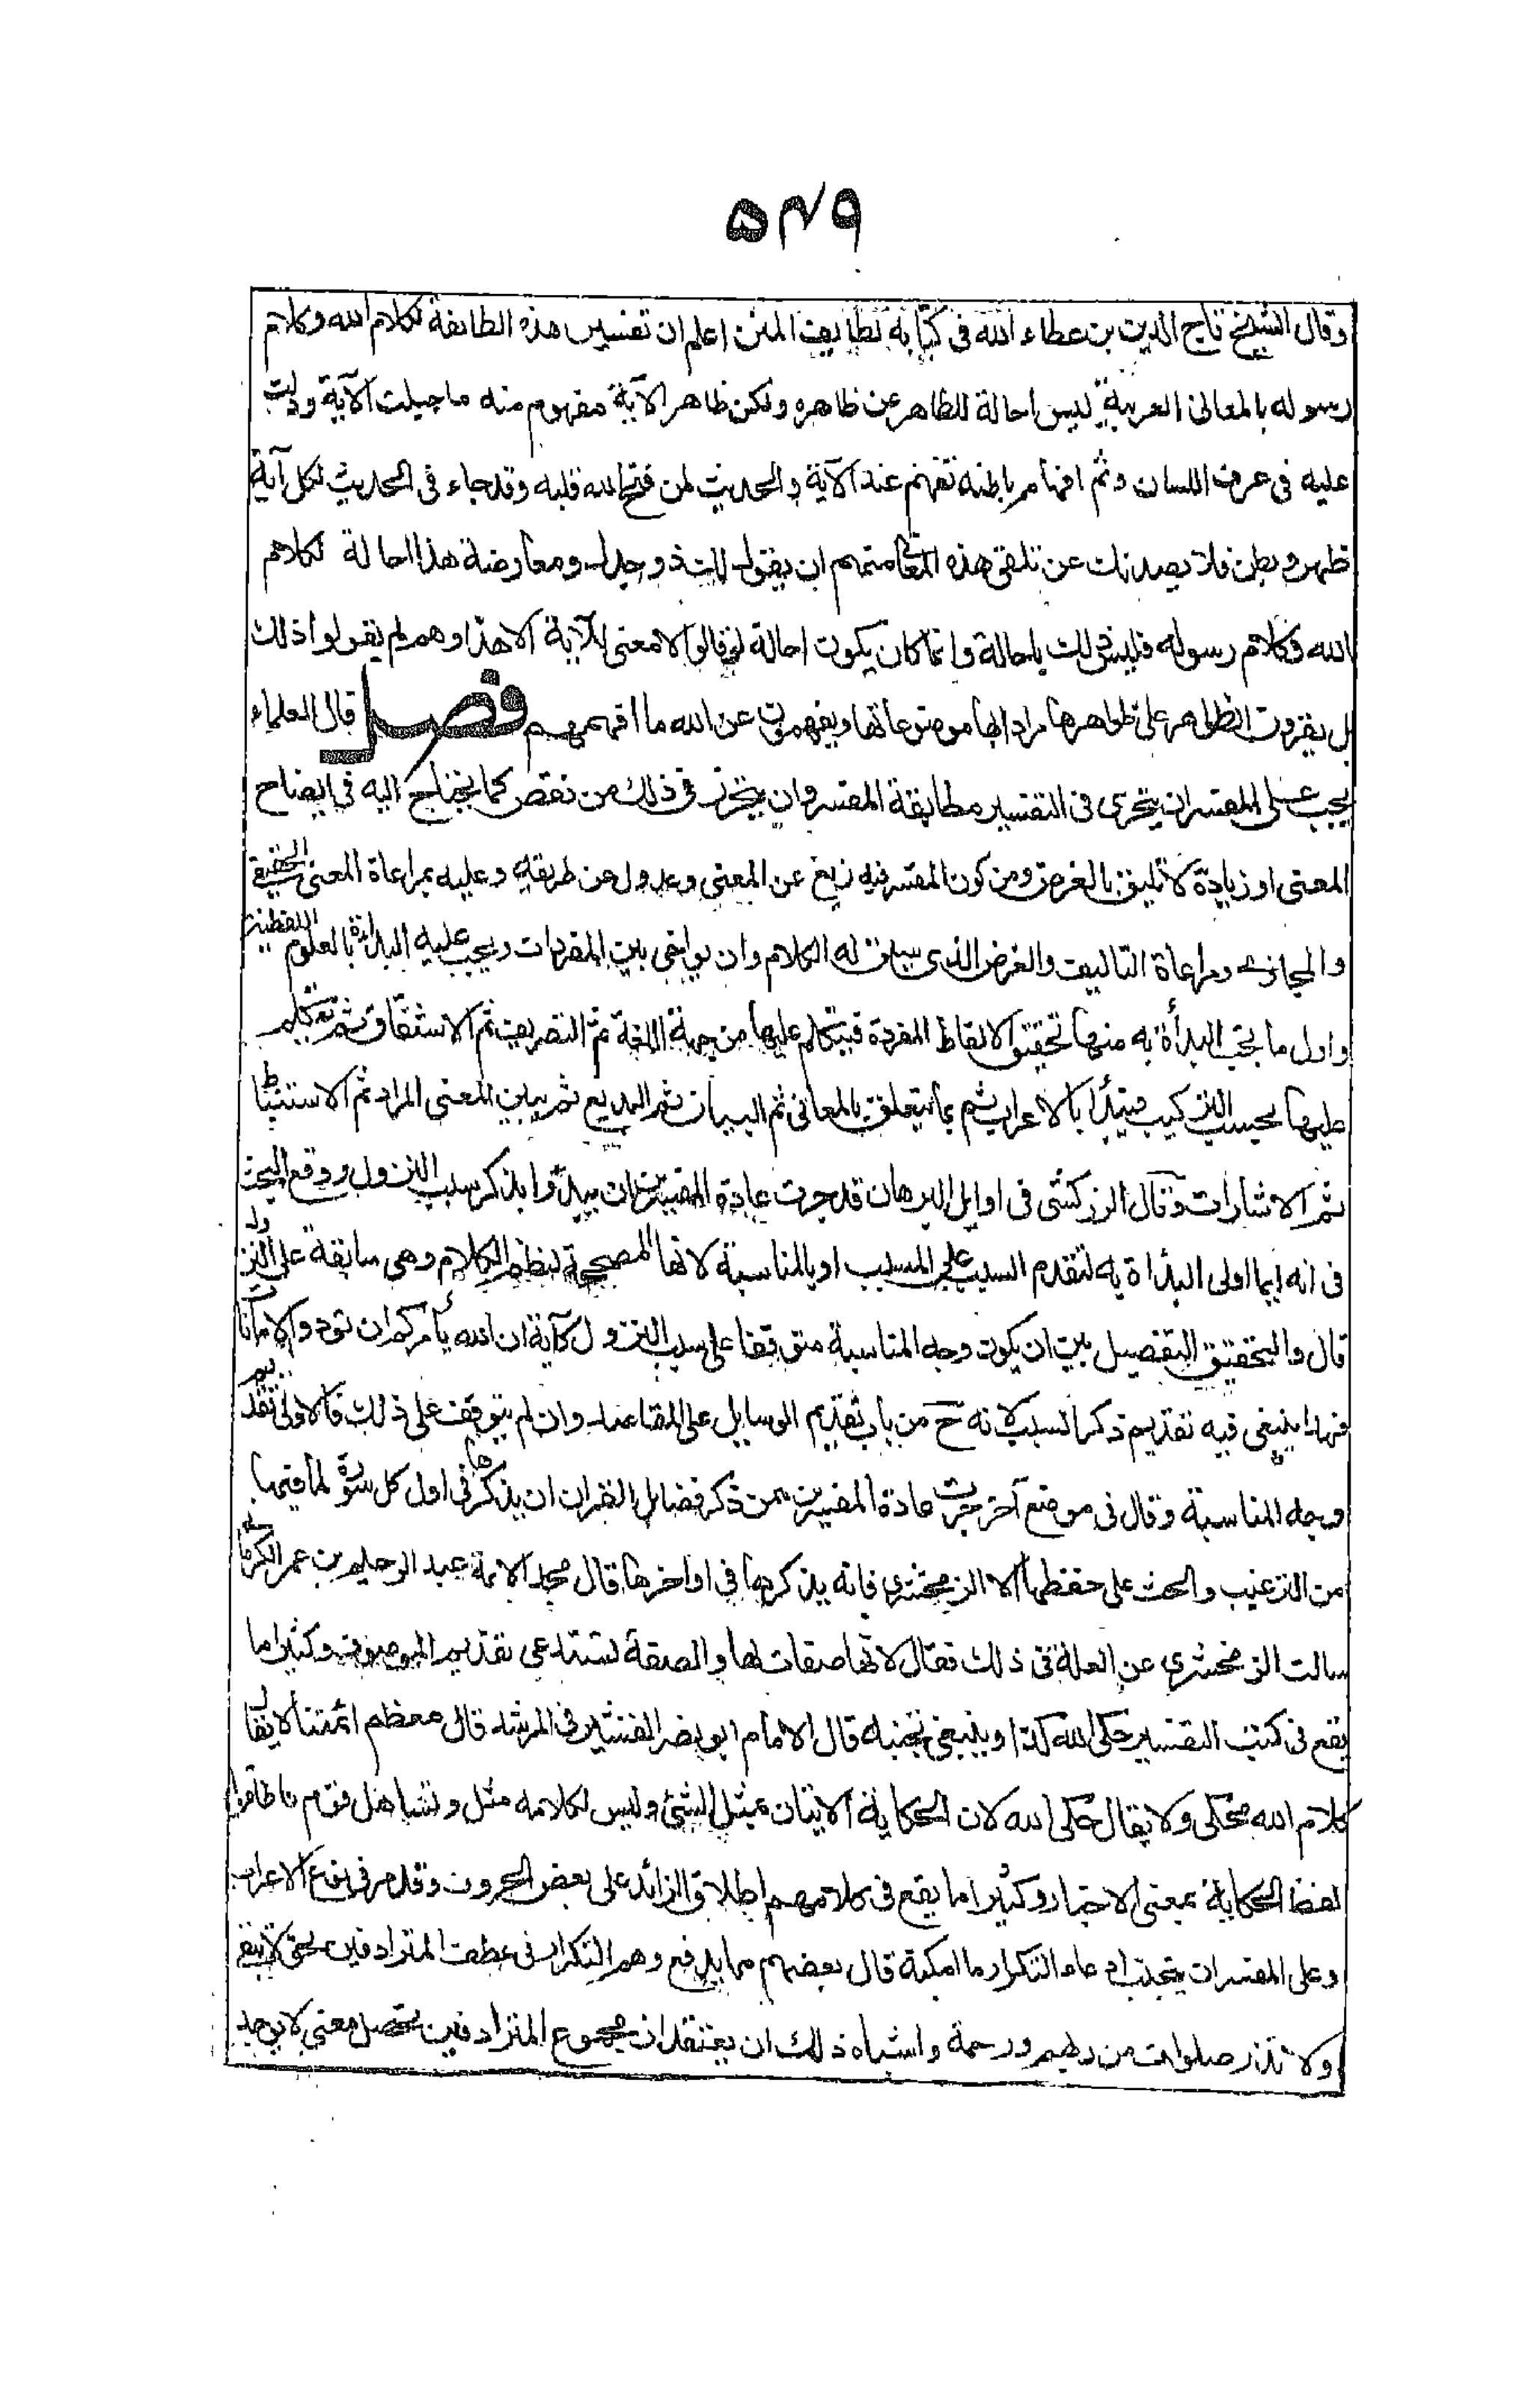 ۵۴۹
وقال الشيخ تاج الدين بن عطاء الله فى كتابه لطايف المنن اعلم ان تفسير هذه الطايفة لكلام الله وكلام
رسوله بالمعانى العربية ليس احالة للظاهر عن ظاهره ولكن ظاهر الآية مفهوم منه ما جيلت الآية ودلت
عليه فى عرف اللسان وثم افهام باطنة تفهم عند الآية والحديث لمن فتح الله قلبه وقد جاء فى الحديث لكل آية
ظهر وبطن فلا يصدنك عن تلقى هذه المعانى منهم ان يقول لك ذو جدل ومعارضة هذا احالة لكلام
الله وكلام رسوله فليس ذلك باحالة وانما كان يكون احالة لو قالوا لا معنى للآية الا هذا وهم لم يقولوا ذلك
بل يقرون الظواهر على ظواهرها مرادا بها موضوعاتها ويفهمون عن الله ما افهمهم فصل قال العلماء
يجب على المفسر ان يتحرى فى التفسير مطابقة المفسر وان يتحرز فى ذلك من نقص كما يحتاج اليه فى ايضاح
المعنى او زيادة لا تليق بالغرض ومن كون المفسر فيه زيغ عن المعنى وعدول عن طريقه وعليه بمراعاة المعنى الحقيقى
والمجازى ومراعاة التاليف والغرض الذى سيق له الكلام وان يواخى بين المفردات ويجب عليه البداءة بالعلوم اللفظية
واول ما يجب البدأة به منها تحقيق الالفاظ المفردة فيتكلم عليها من جهة اللغة ثم التصريف ثم الاشتقاق ثم يتكلم
عليها بحسب التركيب فيبدأ بالاعراب ثم بما يتعلق بالمعانى ثم البيان ثم البديع ثم يبين المعنى المراد ثم الاستنباط
ثم الاشارات وقال الزركشى فى اوايل البرهان قد جرت عادة المفسرين ان يبدؤا بذكر سبب النزول ووقع البحث
فى انه ايما اولى البدأة به لتقدم السبب على المسبب او بالمناسبة لانها المصححة لنظم الكلام وهى سابقة على النزول
قال والتحقيق التفصيل بين ان يكون وجه المناسبة متوقفا على سبب النزول كآية ان الله يأمركم ان تودوا الامانات
فهذا ينبغى فيه تقديم ذكر السبب لانه ح من باب تقديم الوسايل على المقاصد وان لم يتوقف على ذلك فالاولى تقديم
وجه المناسبة وقال فى موضع آخر جرت عادة المفسرين ممن ذكر فضايل القران ان يذكرها فى اول كل سورة لما فيها
من الترغيب والحث على حفظها الا الزمخشرى فانه يذكرها فى اواخرها قال مجد الائمة عبد الرحيم بن عمر الكرمانى
سالت الزمخشرى عن العلة فى ذلك فقال لانها صفات لها والصفة تستدعى تقديم الموصوف وكثيرا ما
يقع فى كتب التفسير حكى الله كذا وينبغى تجنبه قال الامام ابو نصر القشيرى فى المرشد قال معظم ائمتنا لا يقال
كلام الله محكى ولا يقال حكى الله لان الحكاية الاتيان بمثل الشئ وليس لكلامه مثل وتساهل قوم فاطلقوا
لفظ الحكاية بمعنى الاخبار وكثيرا ما يقع فى كلامهم اطلاق الزائد على بعض الحروف وقد مر فى نوع الاعراب
وعلى المفسر ان يتجنب ادعاء التكرار ما امكنه قال بعضهم مما يدفع وهم التكرار فى عطف المترادفين نحو لا تبقى
ولا تذر صلوات من ربهم ورحمة واشباه ذلك ان يعتقد ان مجموع المترادفين يحصل معنى لا يوجد